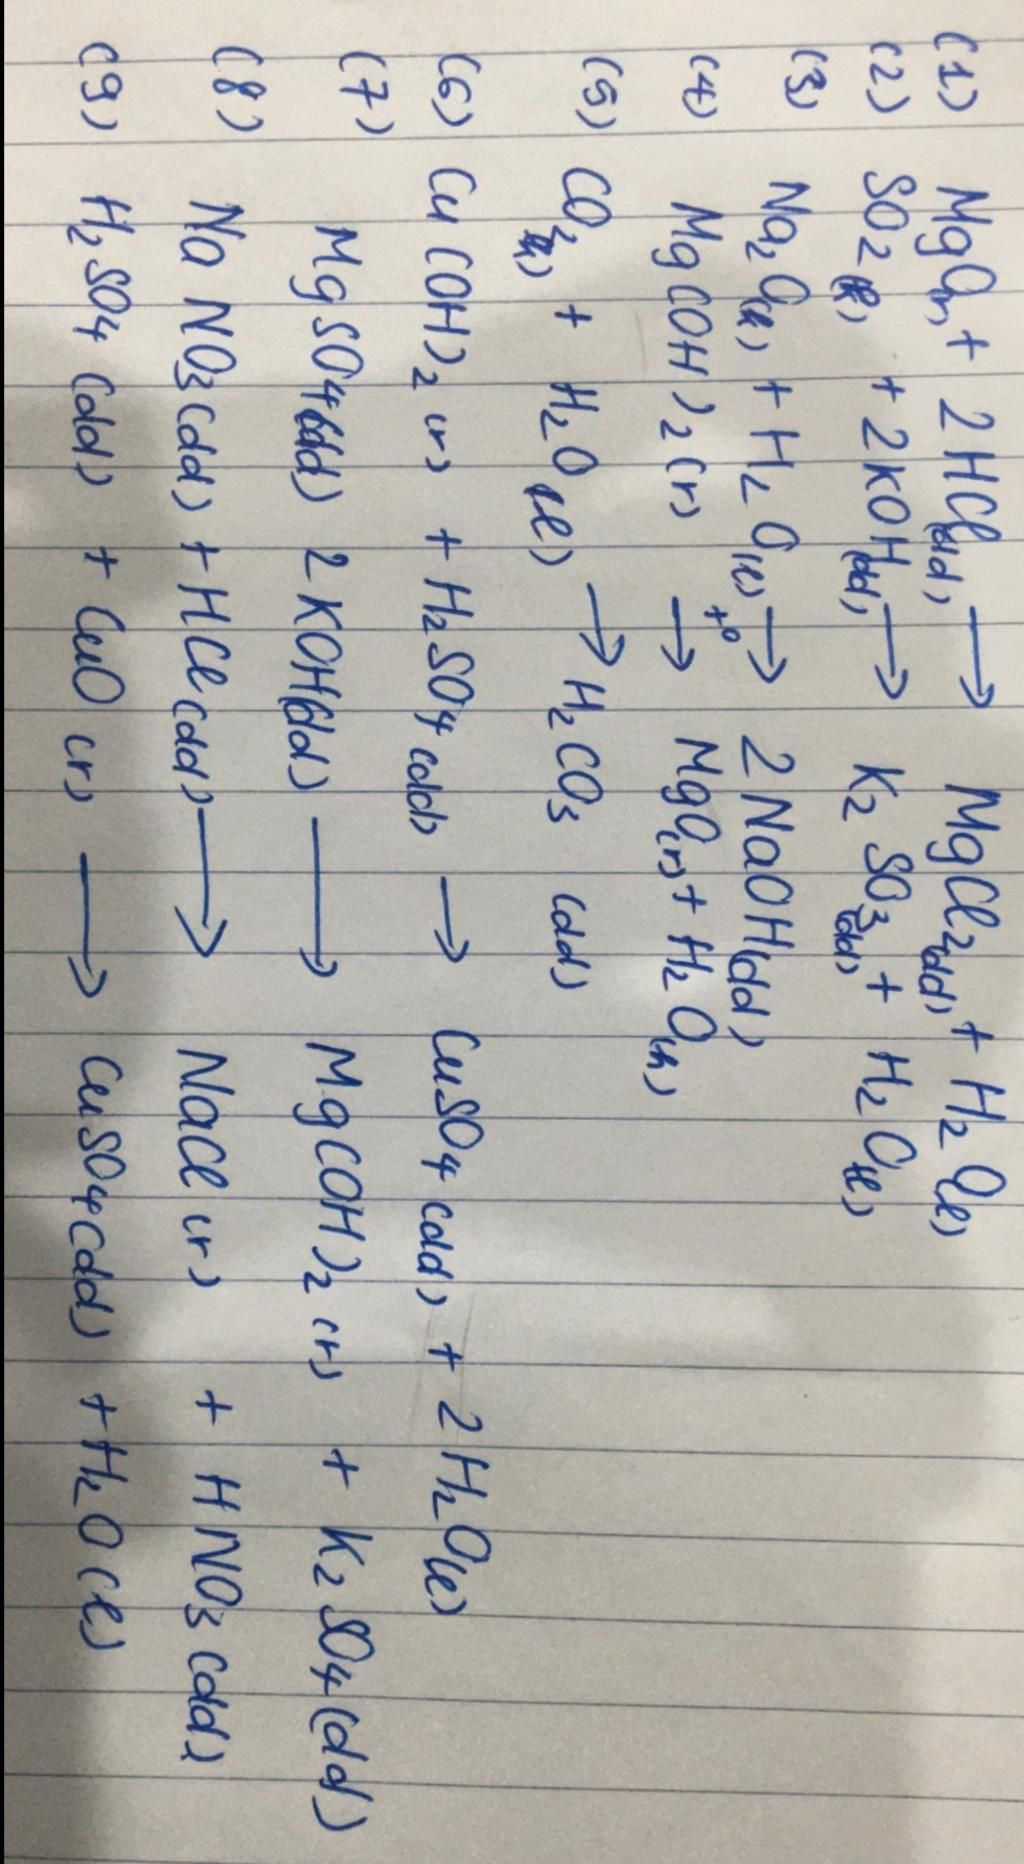 (1) MgO(r) + 2HCl(dd) → MgCl2(dd) + H2O(l)
(2) SO2(k) + 2KOH(dd) → K2SO3(dd) + H2O(l)
(3) Na2O(k) + H2O(l) → 2NaOH(dd)
(4) Mg(OH)2(r) t° → MgO(r) + H2O(h)
(5) CO2(k) + H2O(l) → H2CO3 (dd)
(6) Cu(OH)2(r) + H2SO4(dd) → CuSO4(dd) + 2H2O(l)
(7) MgSO4(dd) 2KOH(dd) → Mg(OH)2(r) + K2SO4(dd)
(8) NaNO3(dd) + HCl(dd) → NaCl(r) + HNO3(dd)
(9) H2SO4(dd) + CuO(r) → CuSO4(dd) + H2O(l)